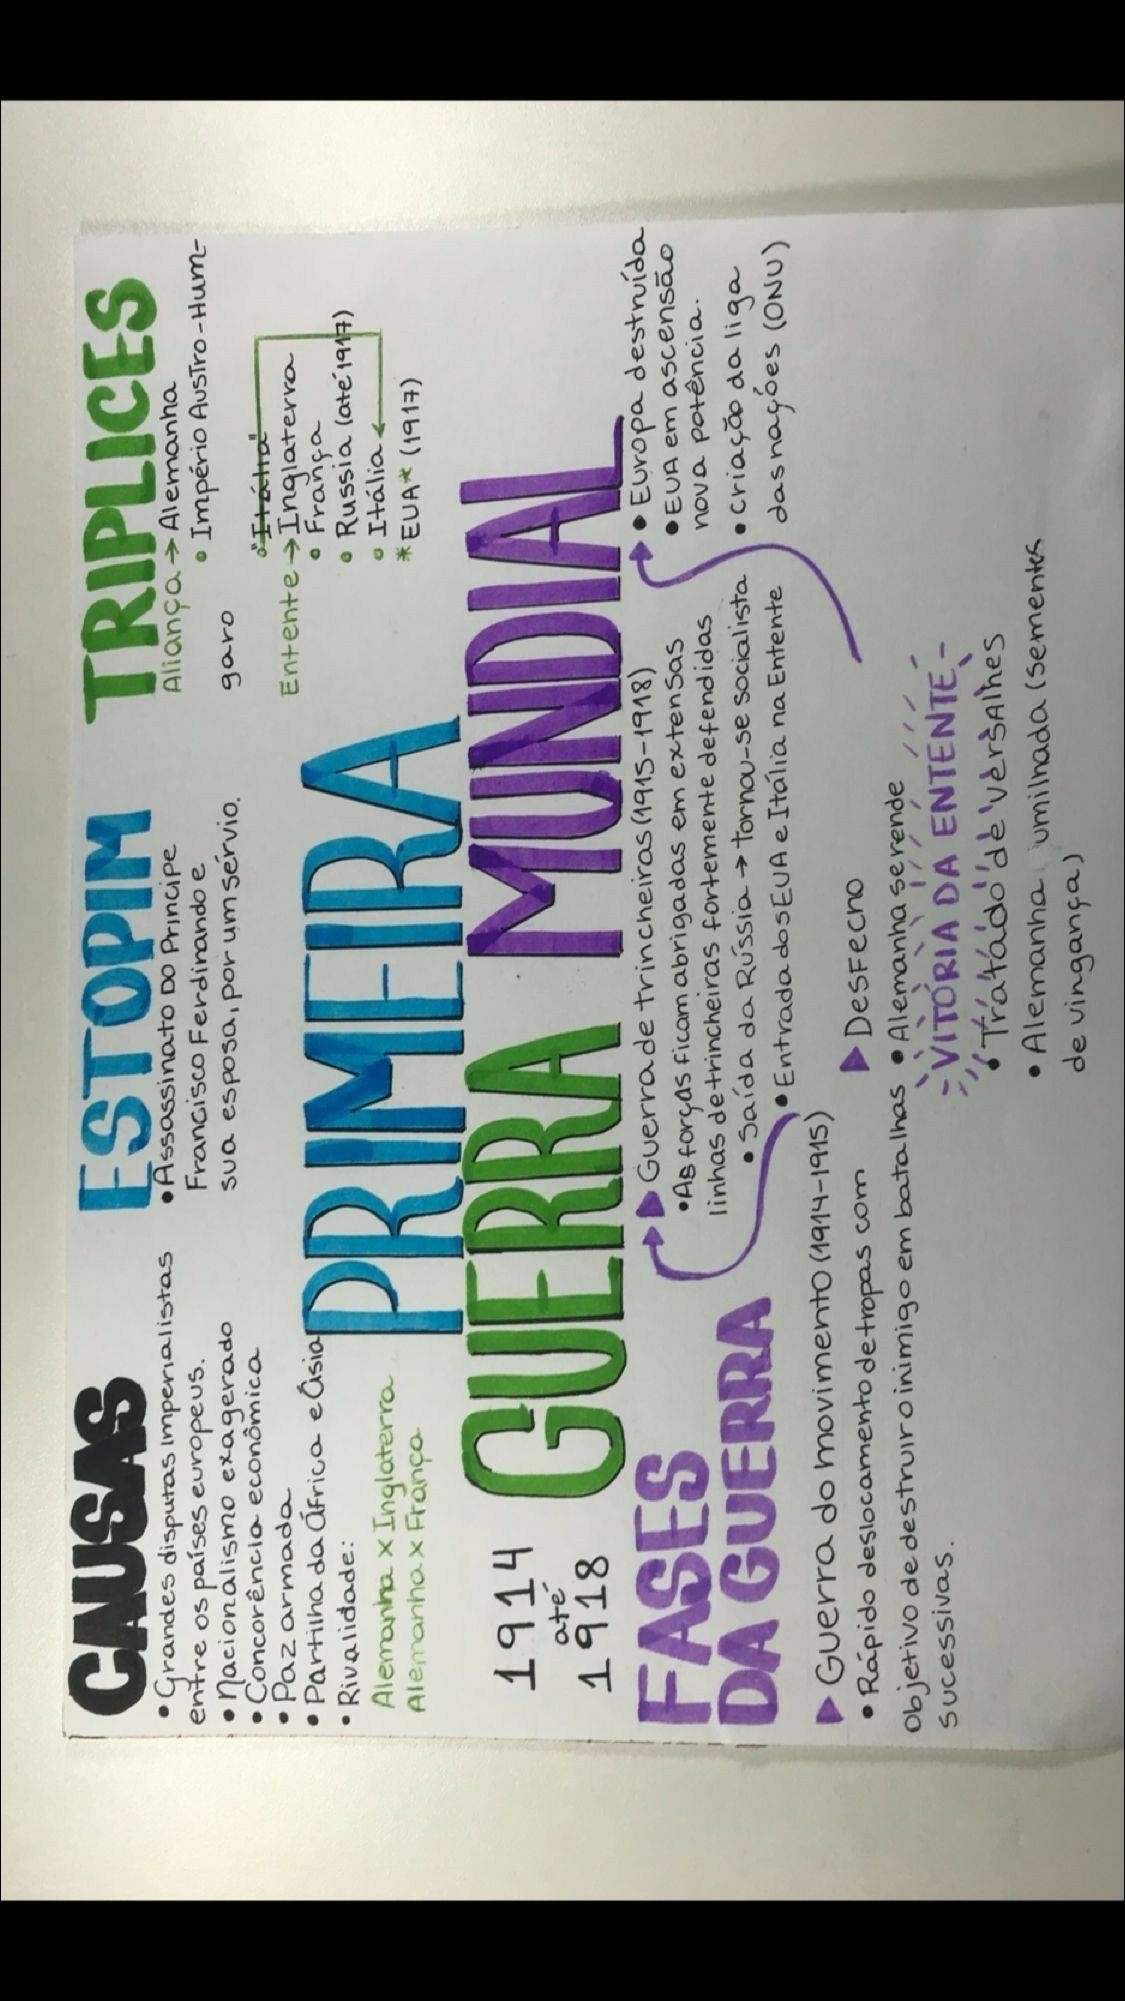 CAUSAS
• Grandes disputas imperialistas
entre os países europeus.
• Nacionalismo exagerado
• Concorência econômica
• Paz armada
• Partilha da África e Ásia
• Rivalidade:
Alemanha x Inglaterra
Alemanha x França
ESTOPIM
• Assassinato do Príncipe
Francisco Ferdinando e
sua esposa, por um sérvio.
TRIPLICES
Aliança → Alemanha
• Império Austro-Hum-
garo
• "Itália"
Entente → Inglaterra
• França
• Russia (até 1917)
• Itália
* EUA* (1917)
1914
até
1918
PRIMEIRA
GUERRA MUNDIAL
FASES
DA GUERRA
▶ Guerra do movimento (1914-1915)
• Rápido deslocamento de tropas com
objetivo de destruir o inimigo em batalhas
sucessivas.
▶ Guerra de trincheiras (1915-1918)
• As forças ficam abrigadas em extensas
linhas de trincheiras fortemente defendidas
• Saída da Rússia → tornou-se socialista
• Entrada dos EUA e Itália na Entente
▶ Desfecho
• Alemanha se rende
VITÓRIA DA ENTENTE
• Tratado de Versalhes
• Alemanha umilhada (sementes
de vingança)
• Europa destruída
• EUA em ascensão
nova potência.
• criação da liga
das nações (ONU)